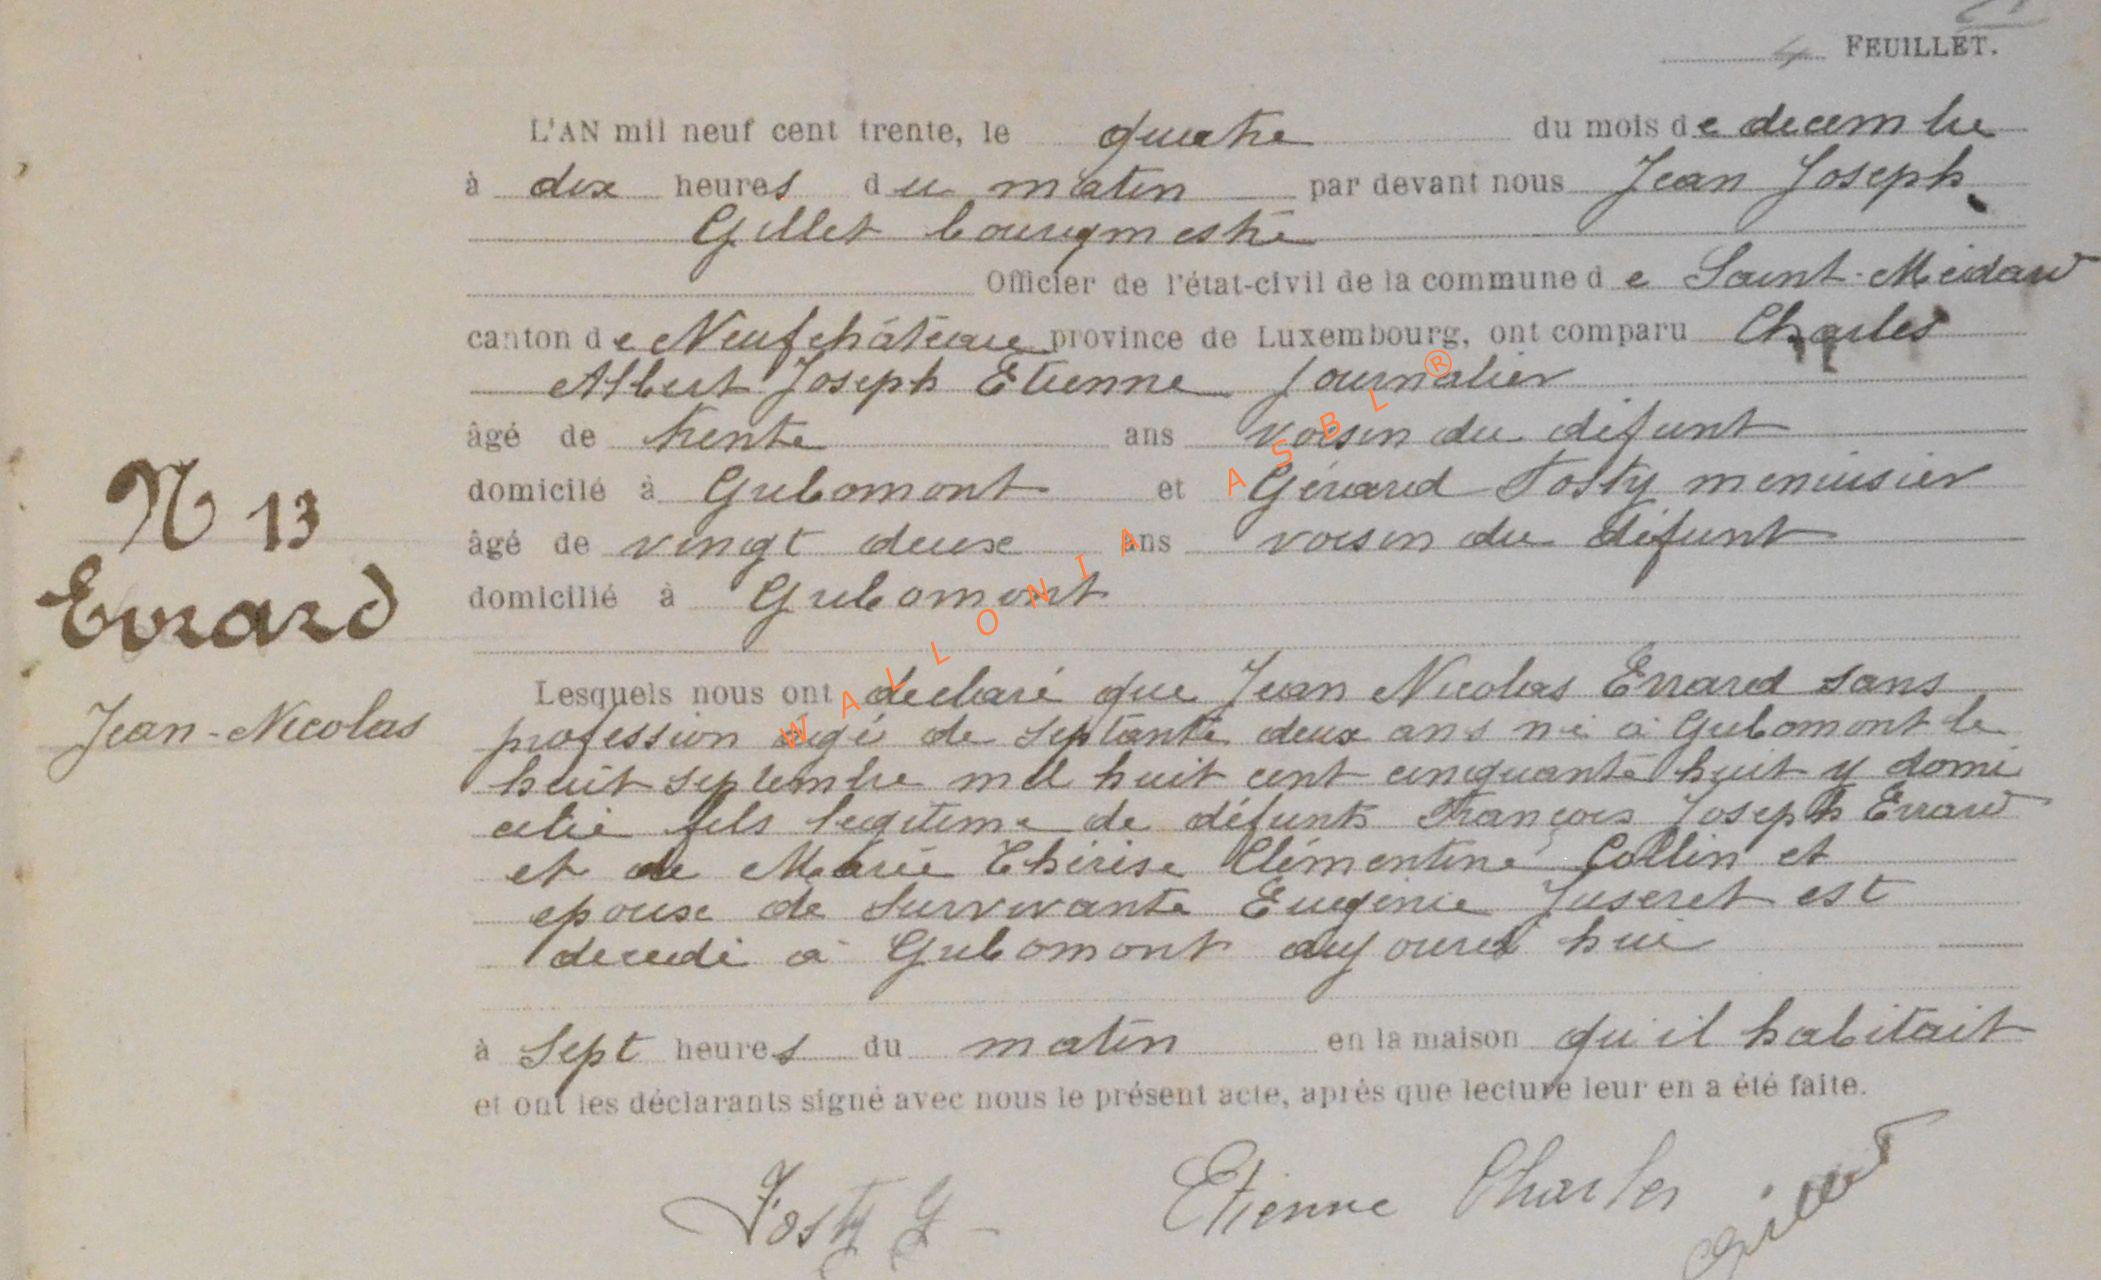 4 FEUILLET.
L'AN mil neuf cent trente, le quatre du mois de decembre
à dix heures du matin par devant nous Jean Joseph
Gillet bourgmestre
Officier de l'état-civil de la commune de Saint-Médard
canton de Neufchâteau province de Luxembourg, ont comparu Charles
Albert Joseph Etienne journalier
âgé de trente ans voisin du défunt
domicilé à Gribomont et Gérard Fosty menuisier
âgé de vingt deux ans voisin du défunt
domicilié à Gribomont
N 13
Evrard
Jean-Nicolas
Lesquels nous ont declaré que Jean Nicolas Evrard sans
profession agé de septante deux ans né à Gribomont le
huit septembre mil huit cent cinquante huit y domi
cilié fils legitime de défunts François Joseph Evrard
et de Marie Thérèse Clémentine Collin et
epoux de survivante Eugénie Juseret est
decedé à Gribomont aujourd hui
à sept heures du matin en la maison qu'il habitait
et ont les déclarants signé avec nous le présent acte, après que lecture leur en a été faite.
Fosty G Etienne Charles Gillet
WALLONIA ASBL ®